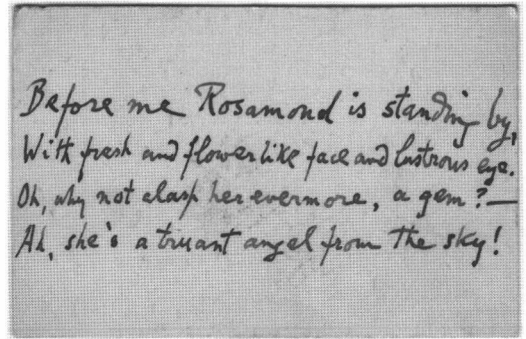 Before me Rosamond is standing by,
With fresh and flowerlike face and lustrous eye.
Oh, why not clasp her evermore, a gem? —
Ah, she's a truant angel from the sky!